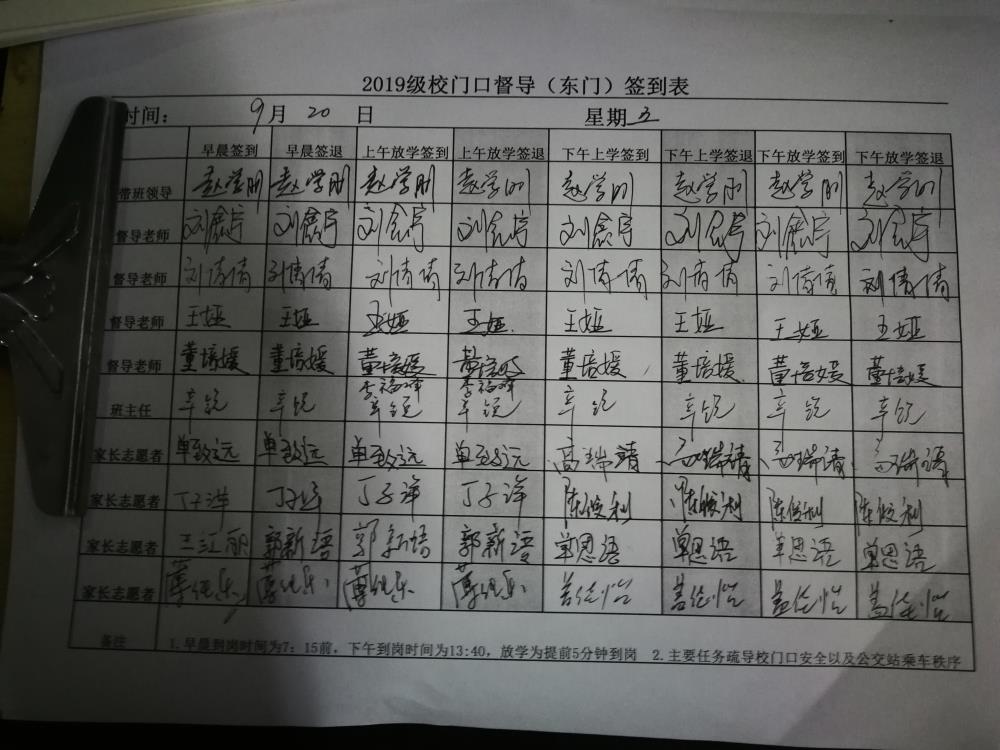 2019级校门口督导（东门）签到表
时间： 9月 20 日 星期 五
早晨签到 早晨签退 上午放学签到 上午放学签退 下午上学签到 下午上学签退 下午放学签到 下午放学签退
带班领导 赵学刚 赵学刚 赵学刚 赵学刚 赵学刚 赵学刚 赵学刚 赵学刚
督导老师
督导老师 刘倩倩 刘倩倩 刘倩倩 刘倩倩 刘倩倩 刘倩倩 刘倩倩 刘倩倩
督导老师 王娅 王娅 王娅 王娅 王娅 王娅 王娅 王娅
督导老师 董培媛 董培媛 董培媛 董培媛 董培媛 董培媛 董培媛 董培媛
班主任 辛锐 辛锐 辛锐 辛锐 辛锐 辛锐 辛锐 辛锐
家长志愿者 单致远 单致远 单致远 单致远 高瑞靖 高瑞靖 高瑞靖 高瑞靖
家长志愿者 丁子洋 丁子洋 丁子洋 丁子洋 陈俊利 陈俊利 陈俊利 陈俊利
家长志愿者 王江丽 郭新语 郭新语 郭新语 单思语 单思语 单思语 单思语
家长志愿者
备注 1.早晨到岗时间为7：15前，下午到岗时间为13:40，放学为提前5分钟到岗 2.主要任务疏导校门口安全以及公交站乘车秩序